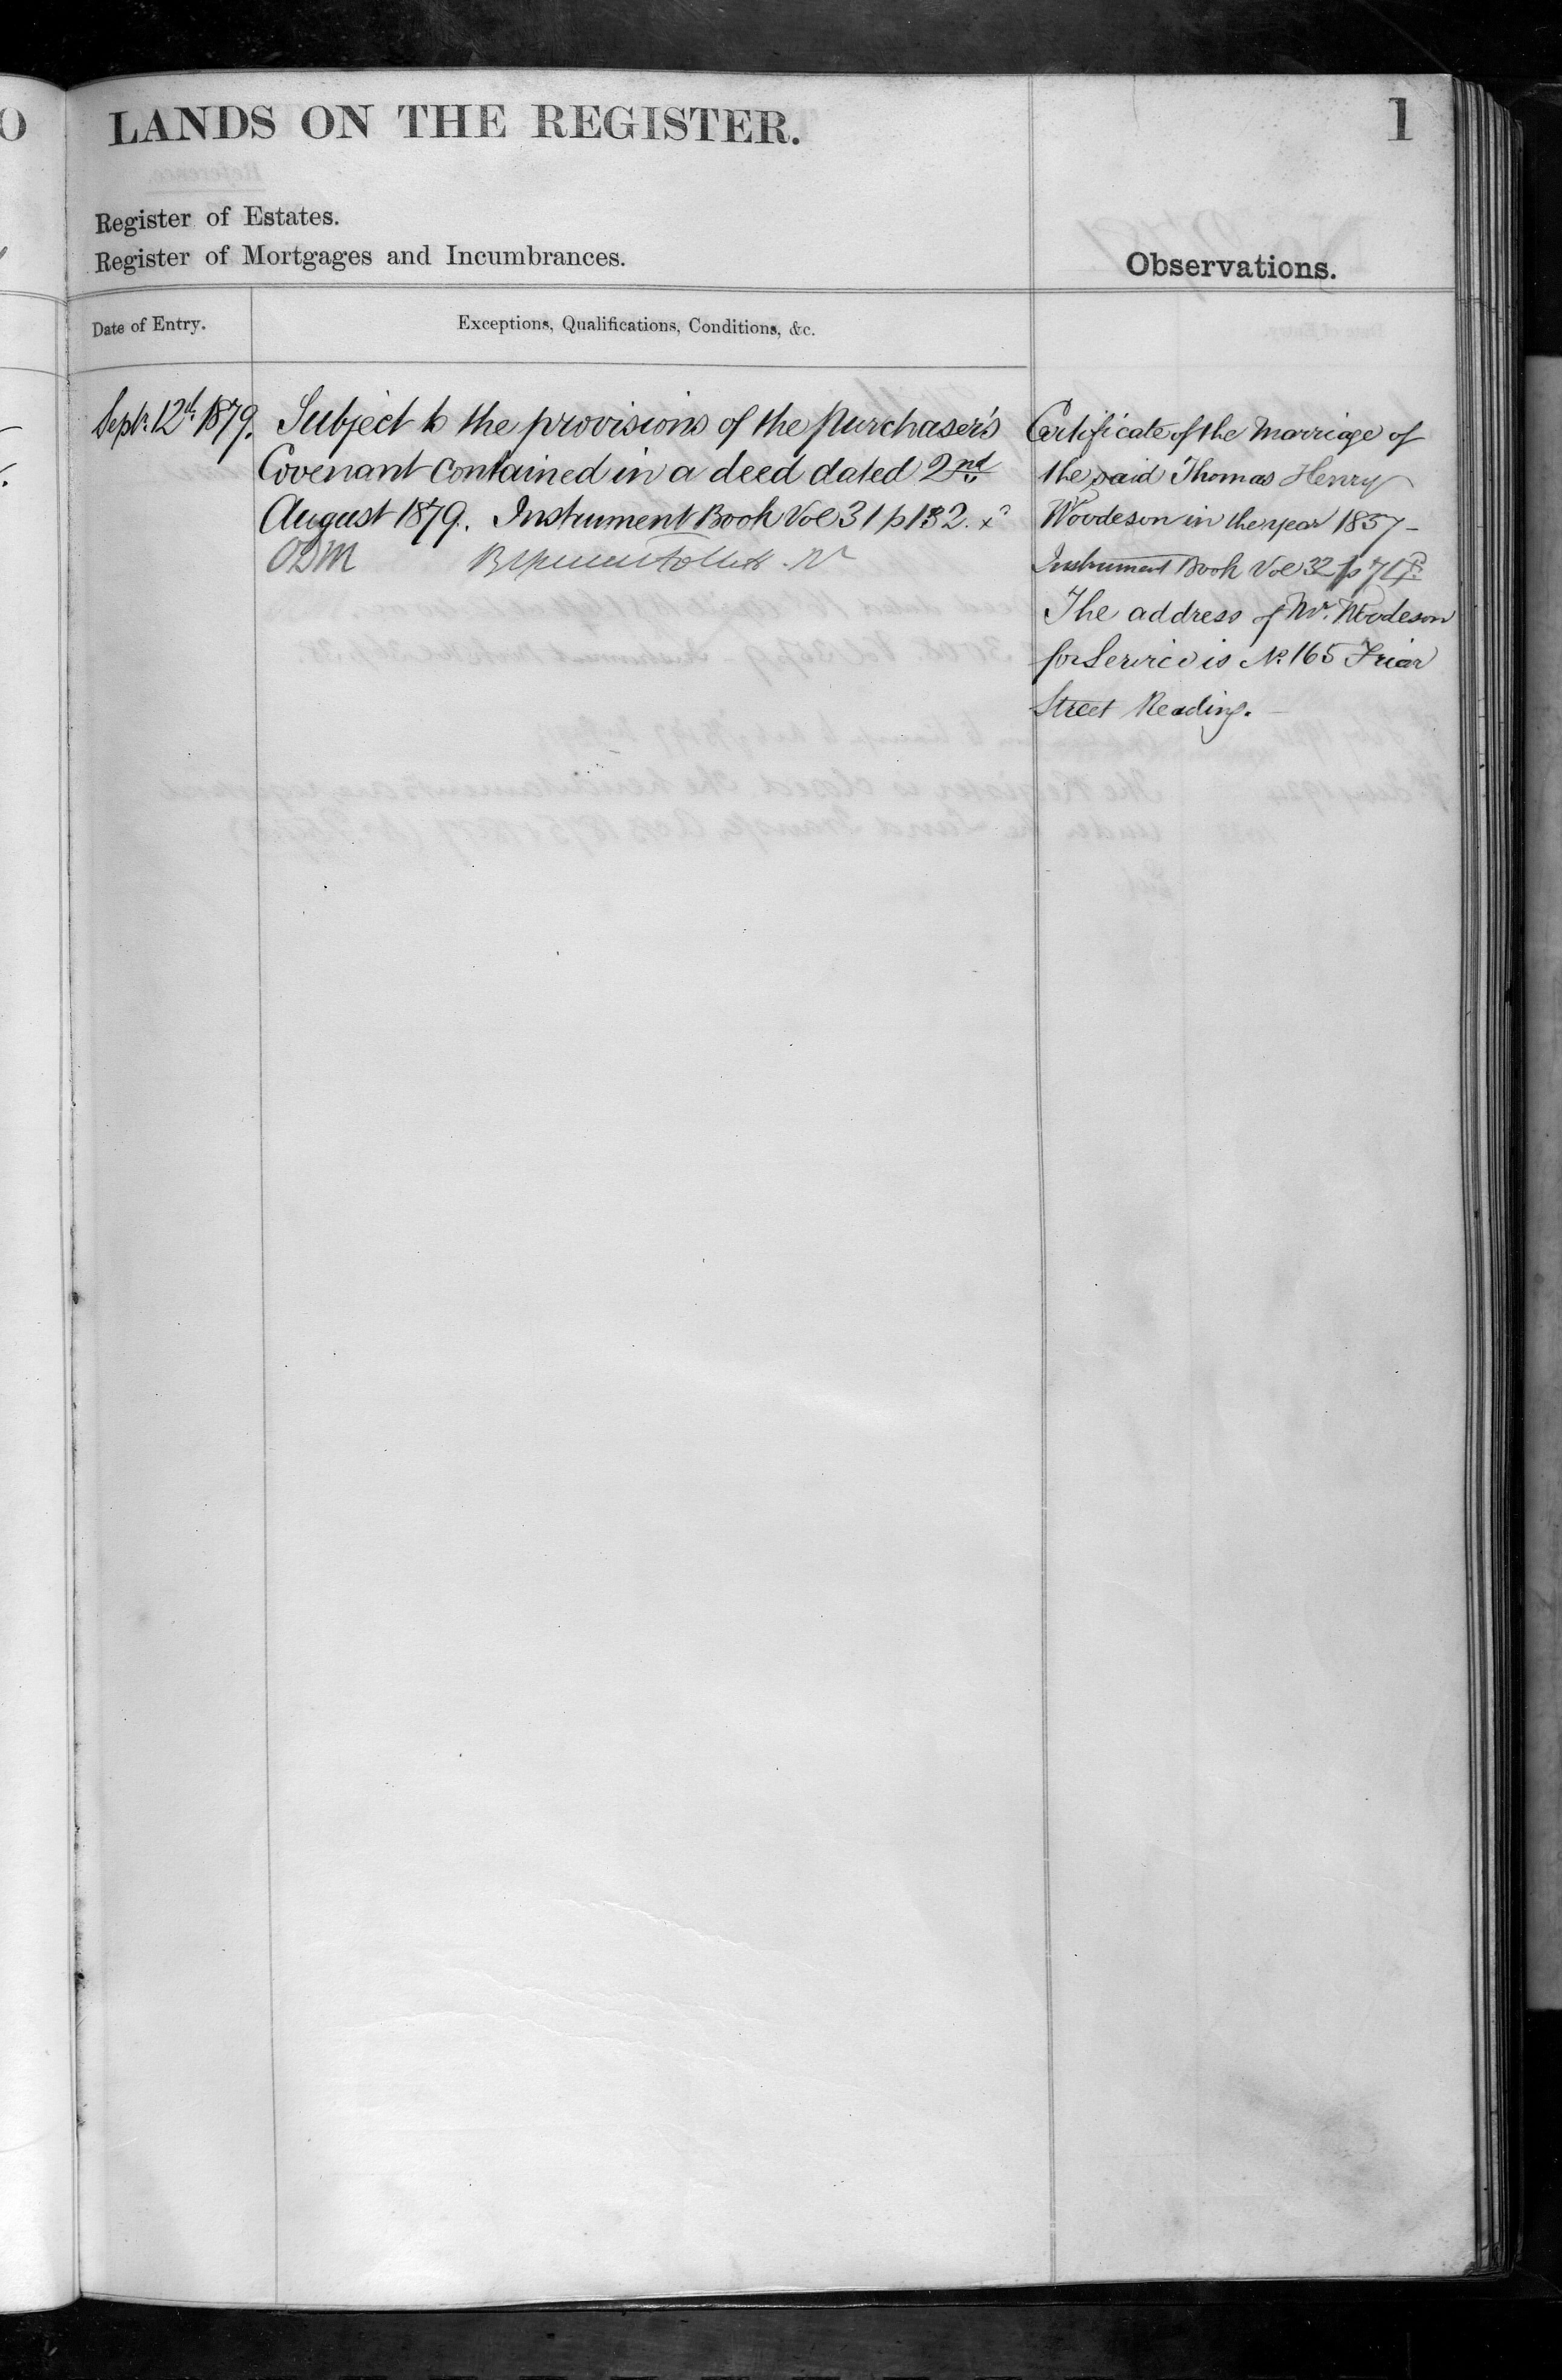 LANDS ON THE REGISTER.
1
Register of Estates.
Register of Mortgages and Incumbrances.
Observations.
Date of Entry.
Exceptions, Qualifications, Conditions, &c.
Septr. 12th 1879.
Subject to the provisions of the Purchaser's
Covenant contained in a deed dated 2nd
August 1879. Instrument Book Vol 31 p 132.
ODM
Certificate of the Marriage of
the said Thomas Henry
Woodeson in the year 1857 -
Instrument Book Vol 32 p 74
The address of Mr. Woodeson
for Service is No. 165 Friar
Street Reading.